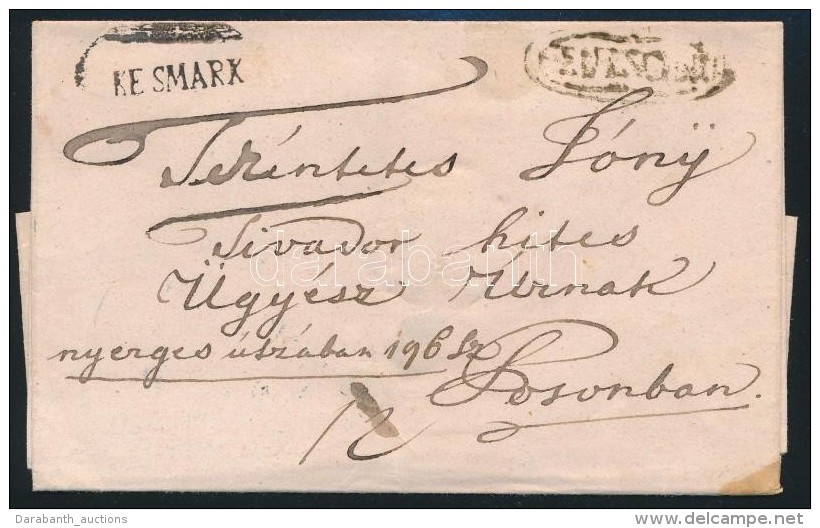 KESMARK
Tekéntetes Lónÿ
Tivador hites
Ügyész Urnak
nyerges úszában 196 Sz
Posonban.
12
darabanth
Darabanth_auctions
delcampe.net